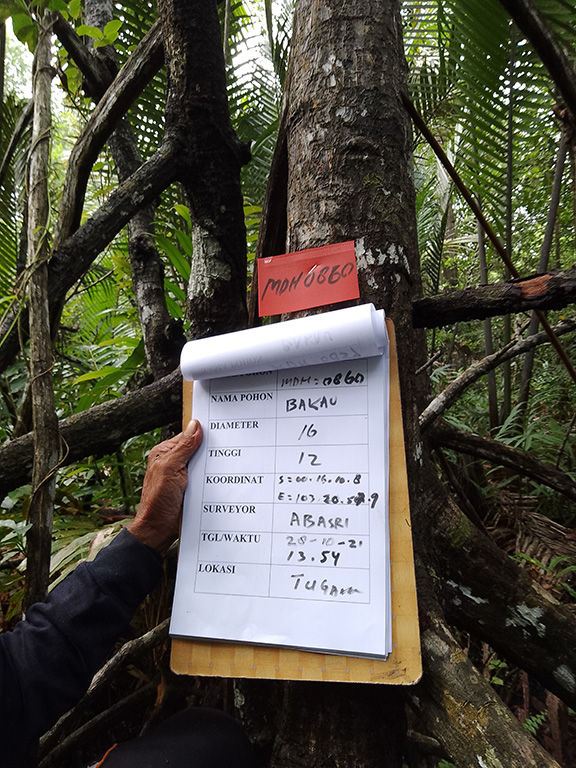 MDH 0860
MDH = 0860
NAMA POHON BAKAU
DIAMETER 16
TINGGI 12
KOORDINAT S = 00.16.10.8
E = 103.20.57.9
SURVEYOR ABASRI
TGL/WAKTU 28-10-21
13.54
LOKASI